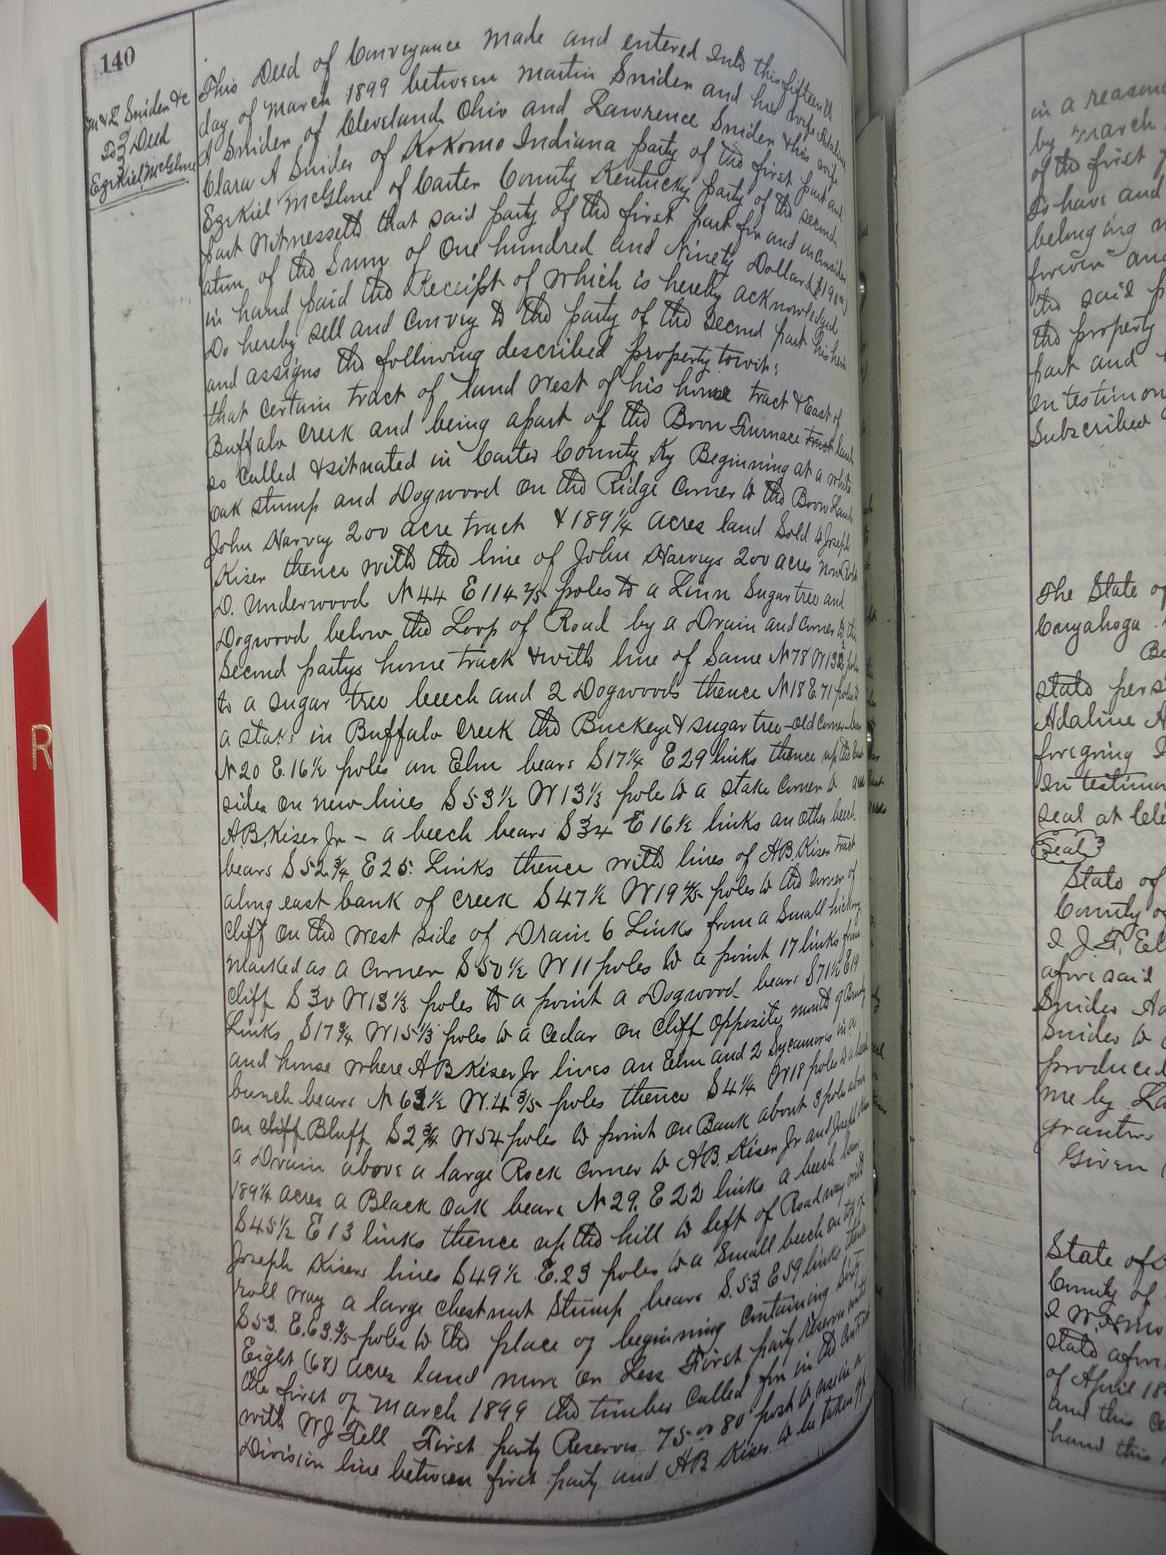 140
M & L Snider &c
To } Deed
Ezekiel McGlone
This Deed of Conveyance made and entered Into this fifteenth
day of March 1899 between Martin Snider and his wife Adaline
A Snider of Cleveland Ohio and Lawrence Snider & his wife
Clara A Snider of Kokomo Indiana party of the first part and
Ezekiel McGlone of Carter County Kentucky party of the second
part Witnesseth that said party of the first part for and in consider
ation of the Sum of One hundred and Ninety Dollars
in hand paid the Receipt of which is hereby acknowledged
Do hereby sell and convey to the party of the second part his heirs
and assigns the following described property towit:
that certain tract of land West of his home tract & East of
Buffalo Creek and being apart of the Boon Furnace land
so called & situated in Carter County Ky Beginning at a white
oak stump and Dogwood on the Ridge corner to the Boon
John Harvey 200 acre tract & 189¼ acres land Sold to Joseph
Kiser thence with the line of John Harveys 200 acres now
D. Underwood N 44 E 114 2/5 poles to a Linn Sugar tree and
Dogwood below the Loop of Road by a Drain and corner to the
second partys home track & with line of Same N 78 W
to a sugar tree beech and 2 Dogwoods thence N 18 E 71 poles to
a stake in Buffalo Creek the Buckeye & sugar tree - old corner
N 20 E. 16½ poles an Elm bears S 17¼ E 29 links thence up the
sides on new lines S 53½ W 13⅓ pole to a stake corner to
A B. Kiser Jr - a beech bears S 34 E 16½ links an other beech
bears S 52¾ E 25 Links thence with lines of A B. Kiser tract
along east bank of creek S 47½ W 19 4/5 poles to the corner of
cliff on the west side of Drain 6 Links from a Small hickory
marked as a corner S 50½ W 11 poles to a point 17 links from
cliff S 30 W 13⅓ poles to a point a Dogwood bears S 71½ E 19
Links S 17¾ W 15⅓ poles to a cedar on cliff opposite mouth of
and house where A B Kiser Jr lives an Elm and 2 Sycamores in a
bunch bears N 63½ W. 4 3/5 poles thence S 4¼ W 18 poles to a
on cliff Bluff S 2¾ W 54 poles to point on Bank about 3 poles above
a Drain above a large Rock corner to A B. Kiser Jr and Joseph
189¼ acres a Black oak bears N 29. E 22 links a beech bears
S 45½ E 13 links thence up the hill to left of Road way with
Joseph Kisers lines S 49½ E. 23 poles to a Small beech on
roll way a large chestnut Stump bears S. 53 E 59 links thence
S 53. E. 63. 3/5 poles to the place of beginning containing Sixty
Eight (68) acres land more or Less First party reserves
the first of March 1899 the timber called for in the
with W J Fell First party Reserves 75 or 80 post to use in a
Division line between first party and A B Kiser to be taken
R
in a reason
by March
of the first
to have and
belonging
forever and
the said p
the property
part and
In testimon
Subscribed
The State of
Cuyahoga
state pers
Adaline A
foregoing
In testim
seal at
Seal
State of
County o
I J. F. El
afore said
Snider Ad
Snider to
produced
me by La
grantor
Given
State of
County of
I W.
state afore
of April 18
and this
hand this